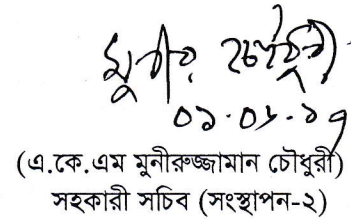 মুনীর চৌধুরী
০১.০৮.১৭
(এ.কে.এম মুনীরুজ্জামান চৌধুরী)
সহকারী সচিব (সংস্থাপন-২)